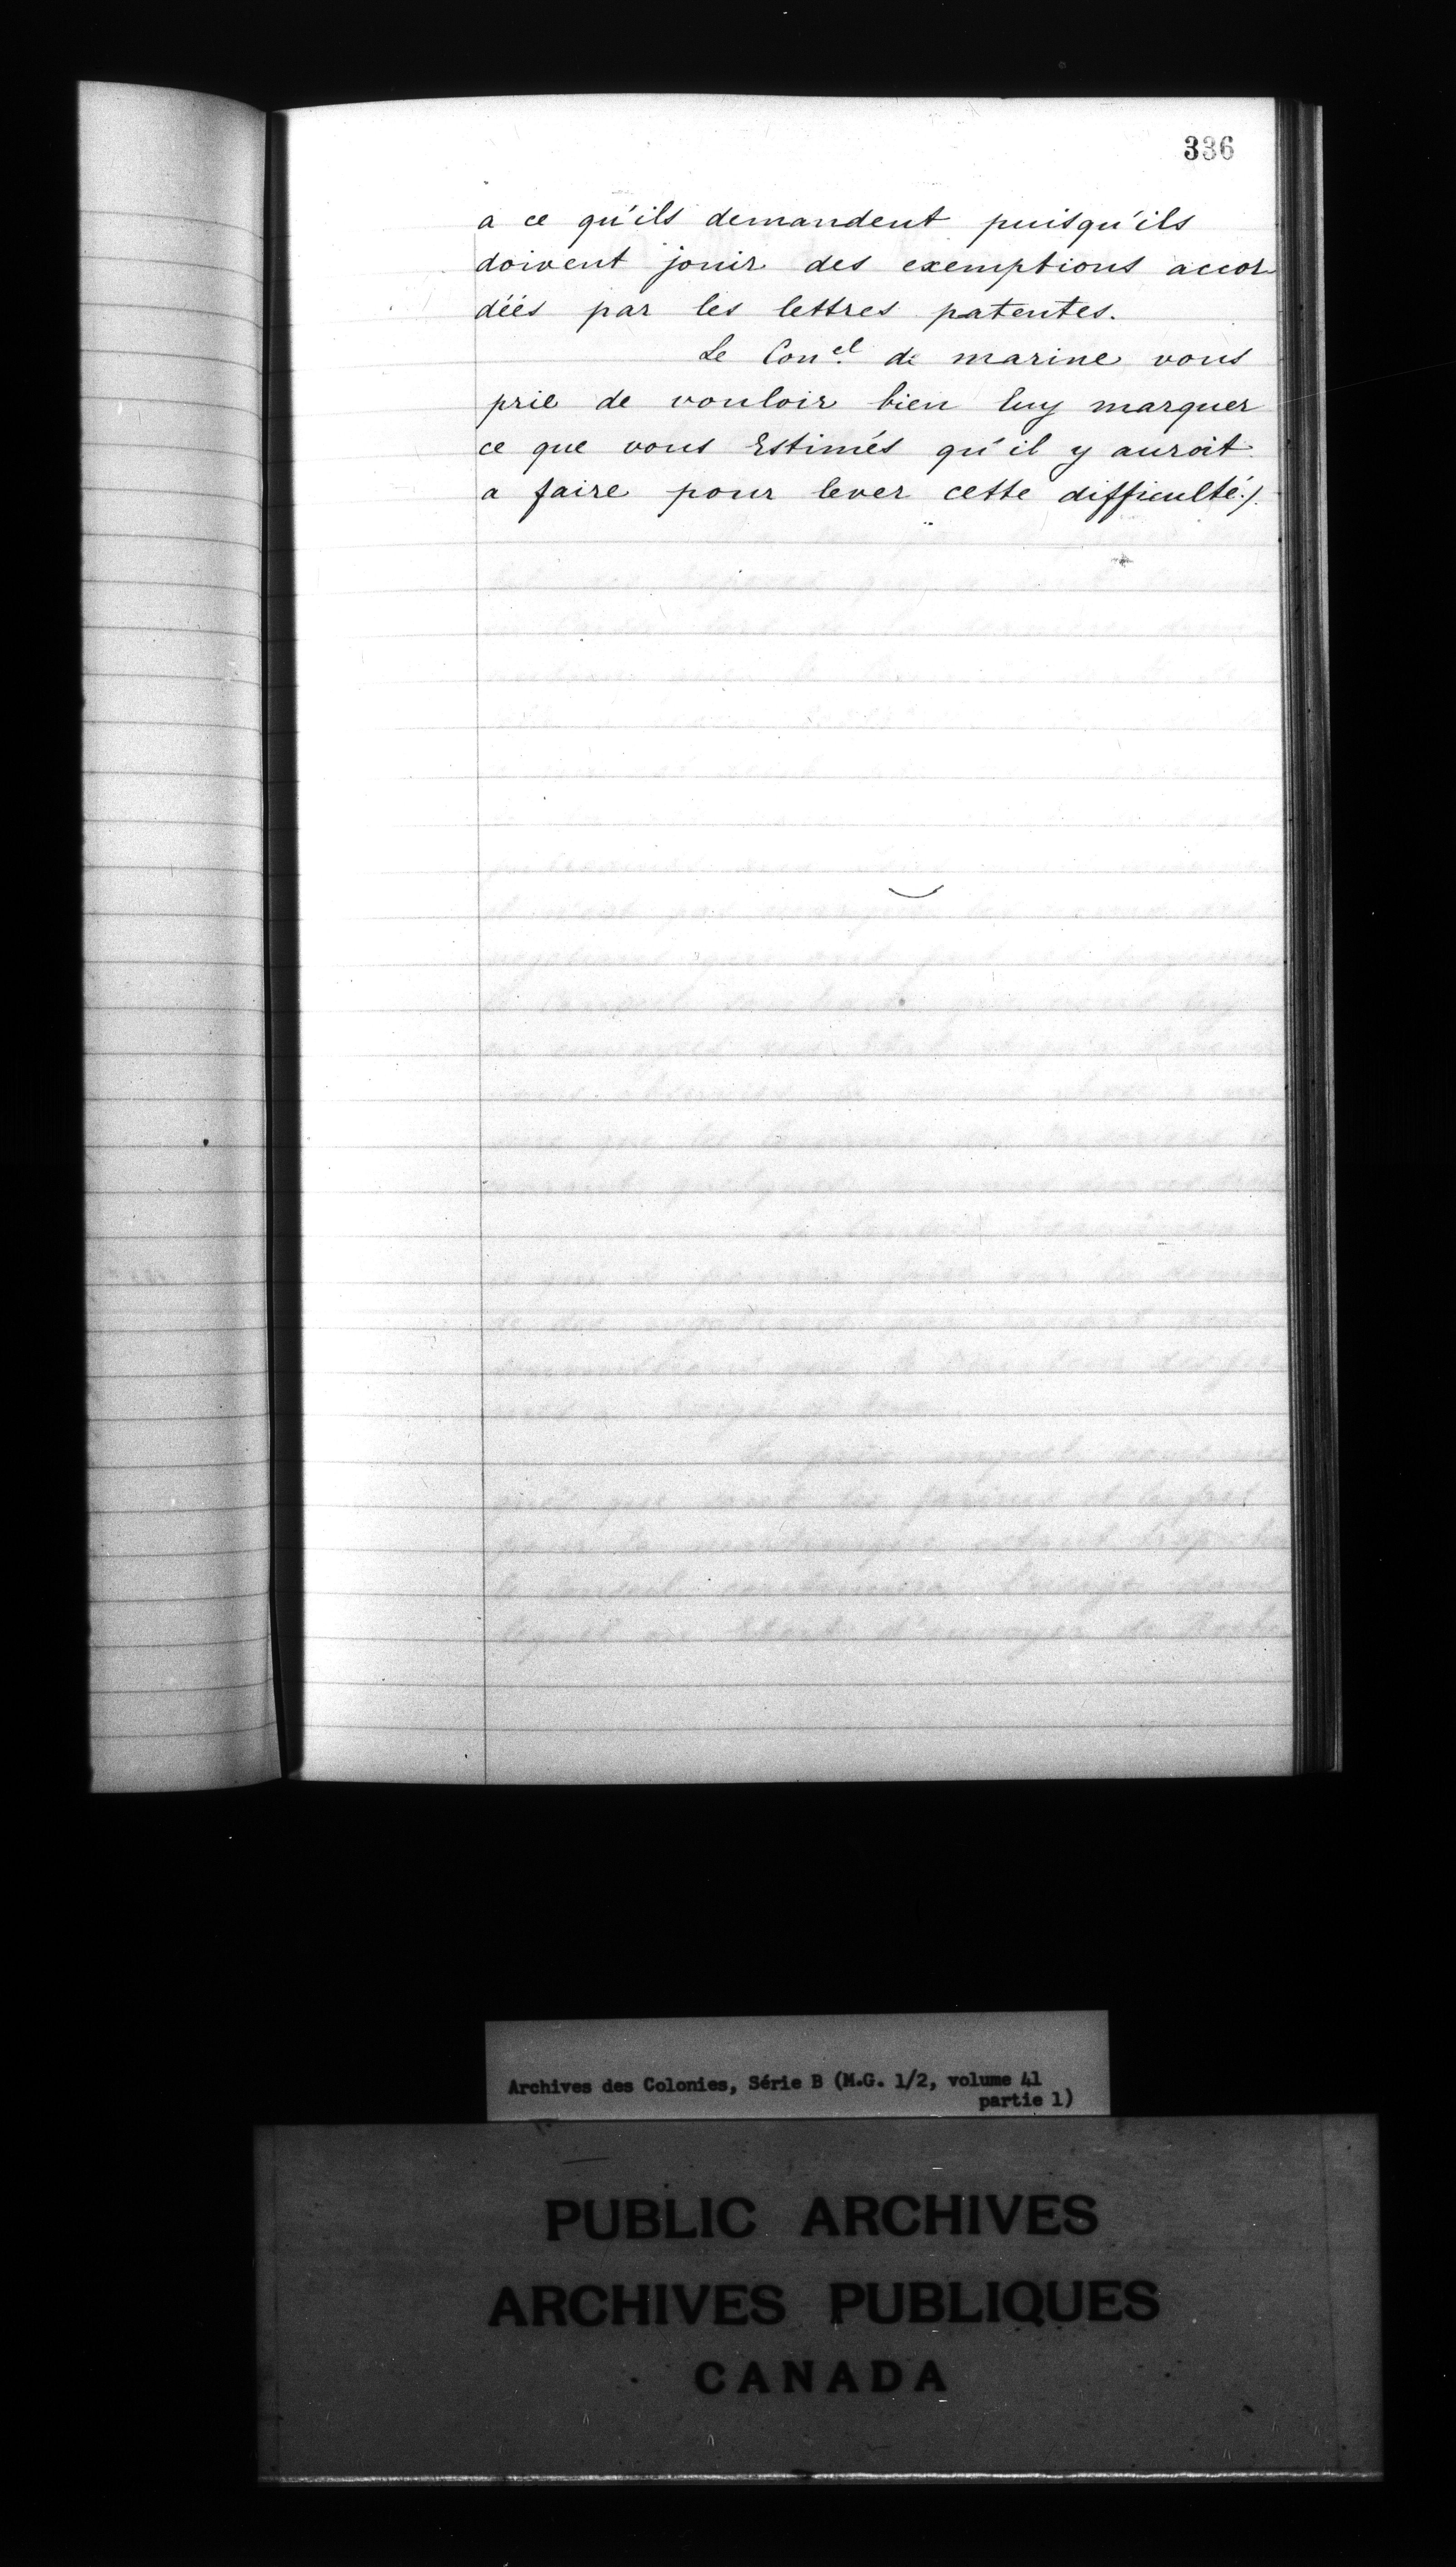 336
a ce qu'ils demandent puisqu'ils
doivent jouir des exemptions accor
déés par les lettres patentes.
Le Con.el de marine vous
prie de vouloir bien luy marquer
ce que vous Estimés qu'il y auroit
a faire pour lever cette difficulté./.
Archives des Colonies, Série B (M.G. 1/2, volume 41
partie 1)
PUBLIC ARCHIVES
ARCHIVES PUBLIQUES
CANADA